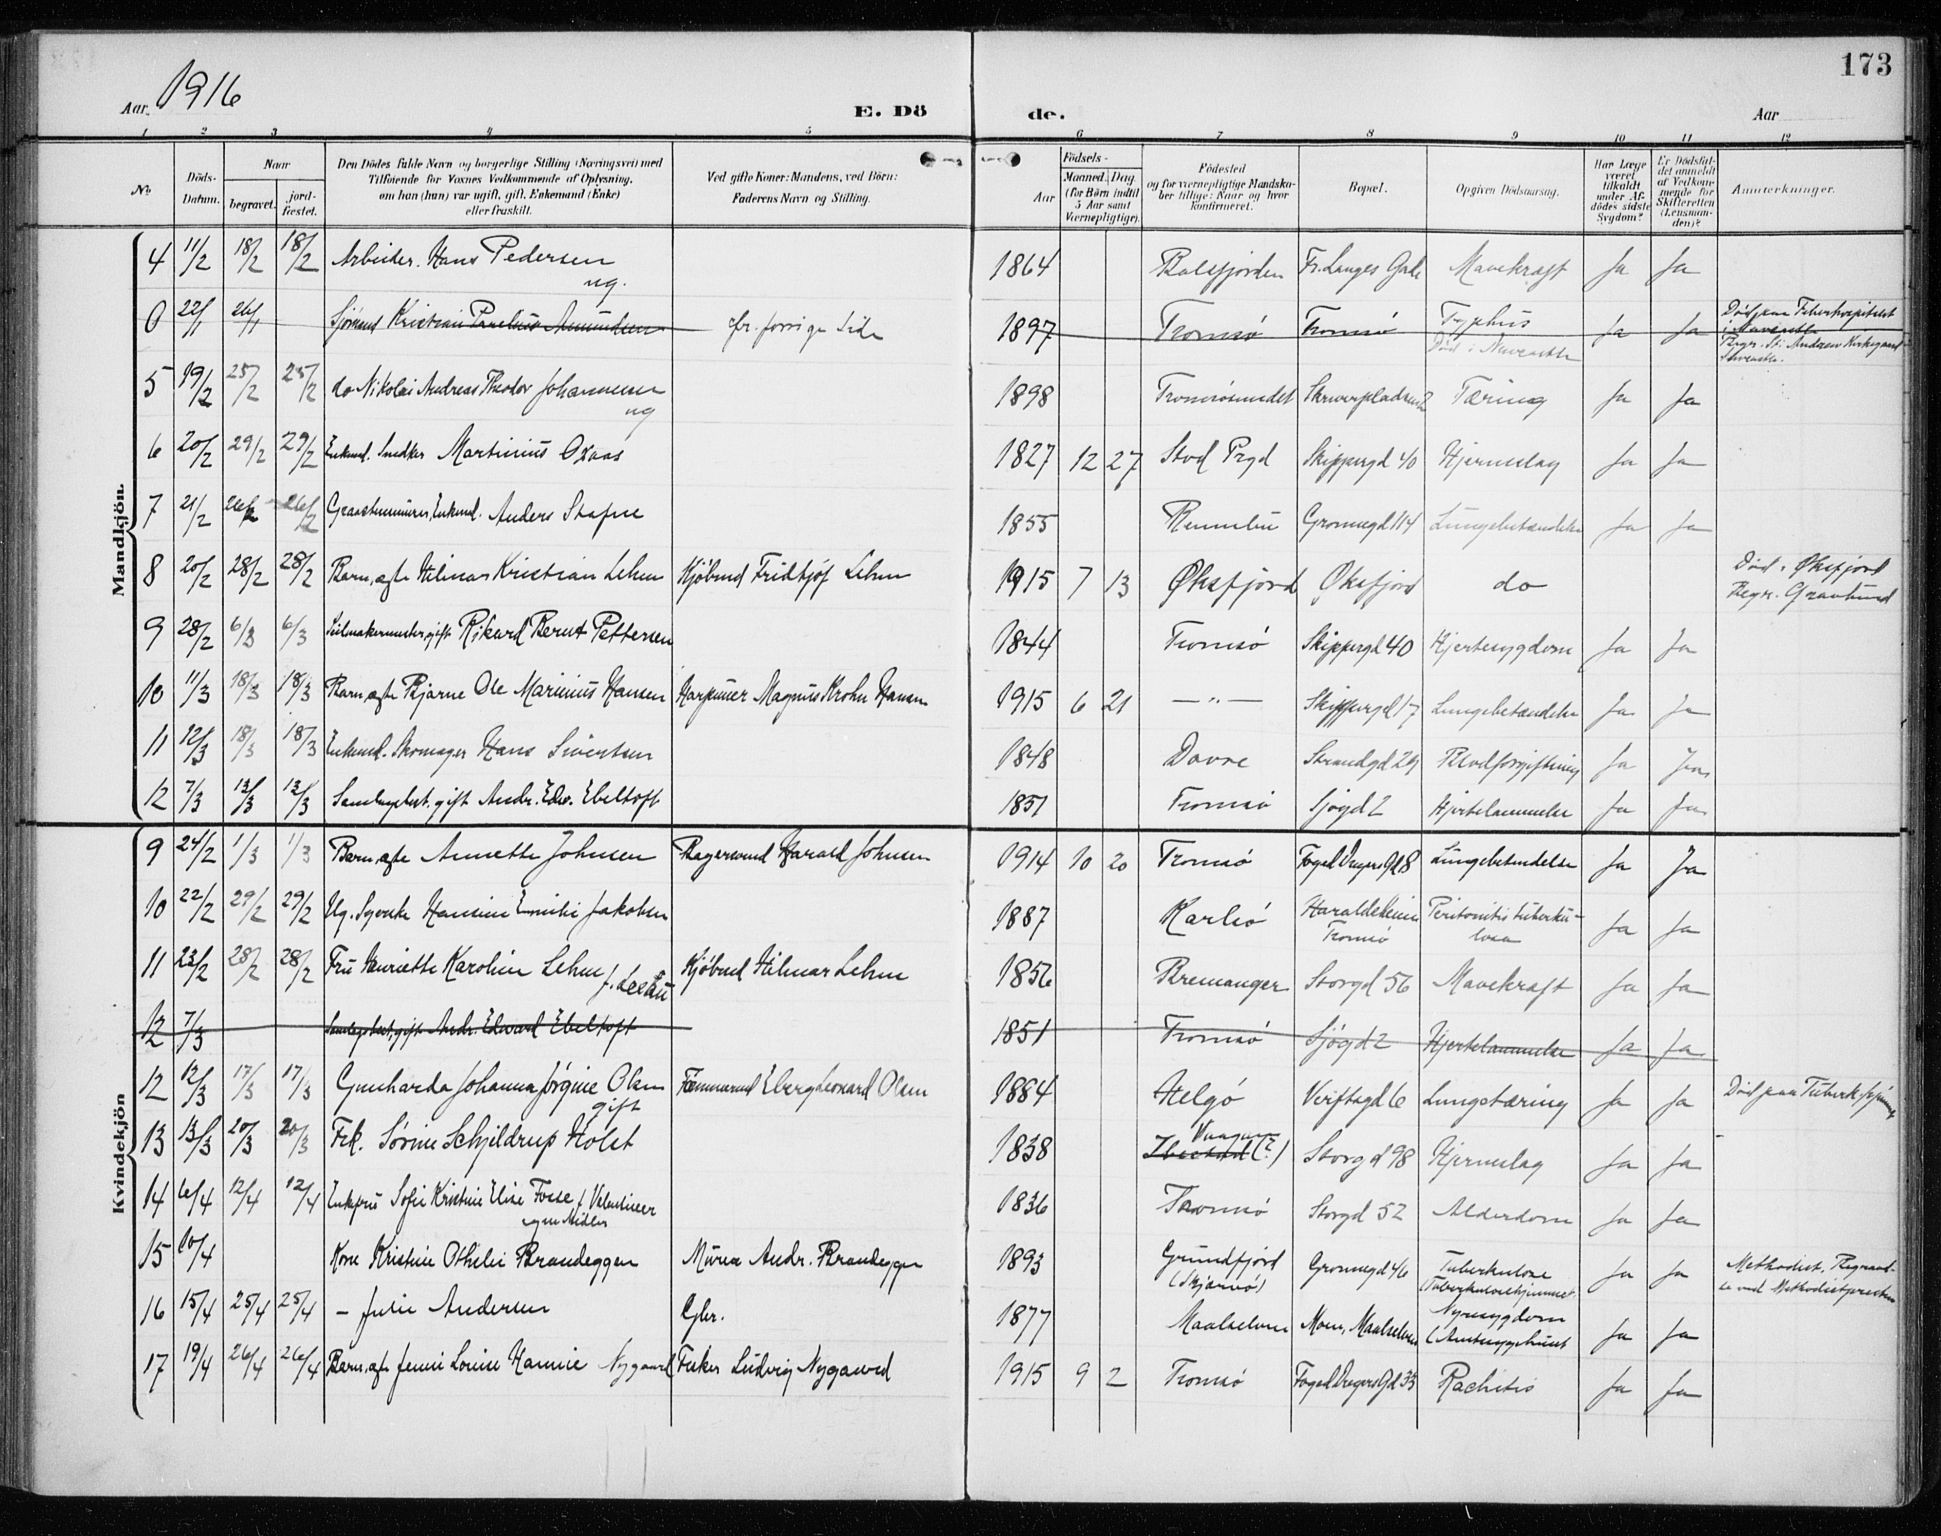 173
Aar 1916
E. Dö
de.
Aar
1 2 3 4 5 6 7 8 9 10 11 12
No
Döds-
Datum.
Naar
begravet.
jord-
fæstet.
Den Dödes fulde Navn og borgerlige Stilling (Næringsvei) med
Tilföiende for Voxnes Vedkommende af Oplysning,
om han (hun) var ugift, gift, Enkemand (Enke)
eller fraskilt.
Ved gifte Koner: Mandens, ved Börn:
Faderens Navn og Stilling.
Födsels-
Aar
Maaned. Dag.
(for Börn indtil
5 Aar samt
Værnepligtige).
Födested
og for værnepligtige Mandska-
ber tillige: Naar og hvor
konfirmeret.
Bopæl.
Opgiven Dödsaarsag.
Har Læge
været
tilkaldt
under Af-
dödes sidste
Sygdom?
Er Dödsfal-
det anmeldt
af Vedkom-
mende for
Skifteretten
(Lensman-
den)?
Anmerkninger.
Mandkjön.
4 11/2 18/2 18/2 Arbeider. Hans Pedersen ug. 1864 Balsfjorden Fr. Langes Gade Mavekræft Ja Ja
0 22/1 26/1 Sjömand Kristian Amundsen cfr. forrige Side 1897 Tromsö Tromsö Typhus Ja Ja
5 19/2 25/2 25/2 do Nikolai Andreas Theodor Johannesen ug 1898 Tromsösundet Tæring Ja Ja
6 20/2 29/2 29/2 Enkemd. Snedker Martinius Oxaas 1827 12 27 Stod Prgd Skippergd 40 Hjerneslag Ja Ja
7 21/2 26/2 26/2 Enkemd. Anders Stafne 1855 Rennebu Grønnegd 114 Lungebetændelse Ja Ja
8 20/2 28/2 28/2 Barn, ægte Hilmar Kristian Lehn Kjöbmd Fridtjöf Lehn 1915 7 13 Øksfjörd Øksfjord do Död i Øksfjord
Begr. Gravlund
9 28/2 6/3 6/3 Seilmakermester, gift Rikard Bernt Pettersen 1844 Tromsö Skippergd 40 Hjertesygdom Ja Ja
10 11/3 18/3 18/3 Barn, ægte Bjarne Ole Marinius Hansen Harpuner Magnus Krohn Hansen 1915 6 21 — " — Skippergd 17 Lungebetændelse Ja Ja
11 12/3 18/3 18/3 Enkemd. Skomager Hans Sivertsen 1848 Dovre Strandgd 29 Blodforgiftning Ja Ja
12 7/3 13/3 13/3 gift Andr. Edv. Ebeltoft 1851 Tromsö Sjögd 2 Hjertelammelse Ja Ja
Kvindekjön
9 24/2 1/3 1/3 Barn, ægte Annette Johnsen Bagersvend Harald Johnsen 1914 10 20 Tromsö Foged Dreyers Gd 8 Lungebetændelse Ja Ja
10 22/2 29/2 29/2 Ug. Syerske Hansine Emilie Jakobsen 1887 Karlsö Haraldsheim
Tromsö Peritonitis tuberku-
losa Ja Ja
11 23/2 28/2 28/2 Fru Henriette Karoline Lehn f. Kjöbmd Hilmar Lehn 1856 Bremanger Storgd 56 Mavekræft Ja Ja
12 7/3 gift Andr. Edward Ebeltoft 1851 Tromsö Sjögd 2 Hjertelammelse Ja Ja
12 12/3 17/3 17/3 Gunharda Johanna Jörgine Olsen gift Tömmermd Eberg Leonard Olsen 1884 Helgö Verftsgd 6 Lungetæring Ja Ja Död paa Tuberk.hjemmet
13 13/3 20/3 20/3 Frk. Sörine Schjeldrup Holst 1838 Ibestad (?) Storgd 98 Hjerneslag Ja Ja
14 6/4 12/4 12/4 Enkefru Sofie Kristine Elise Fosse f. Valentiner 1836 Tromsö Storgd 52 Alderdom Ja Ja
15 10/4 Kone Kristine Othelie Brandeggen Murer Andr. Brandeggen 1893 Grundfjord
(Skjervö) Grønnegd 46 Tuberkulose
(Tuberkulosehjemmet Ja Ja Methodist.
16 15/4 25/4 25/4 — Julie Andersen 1877 Maalselven Moen, Maalselven Nyresygdom
(Amtssygehuset Ja Ja
17 19/4 26/4 26/4 Barn, ægte Jenni Louise Hannie Nygaard Fisker Ludvig Nygaard 1915 9 2 Tromsö Foged Dreyers Gd 33 Rachitis Ja Ja